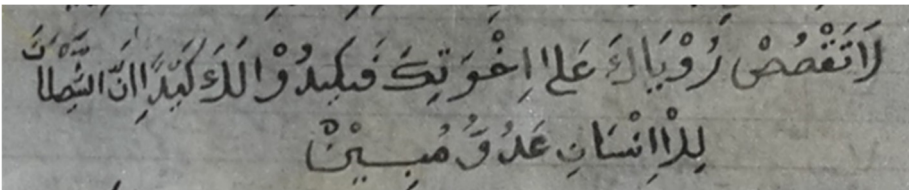 لَاتَقْصُصْ رُوْيَاكَ عَلٰا اِخْوَتِكَ فَيَكِيدُوْا لَكَ كَيْدًا اِنَّ الشَّيْطَانَ
لِلْاِنْسَانِ عَدُوٌّ مُبِيْنٌ